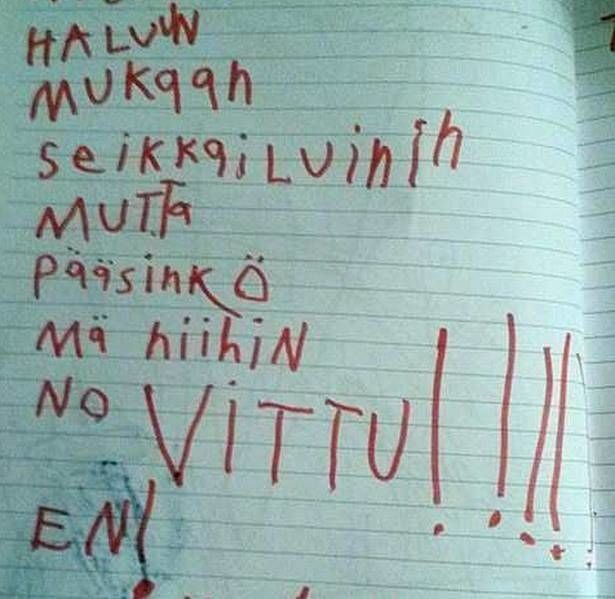 HALUUN
MUKAAN
SeiKKAiLUiHiN
MUTTA
PÄÄSiNKÖ
MÄ NiiHiN
NO ViTTU!!!!
EN!